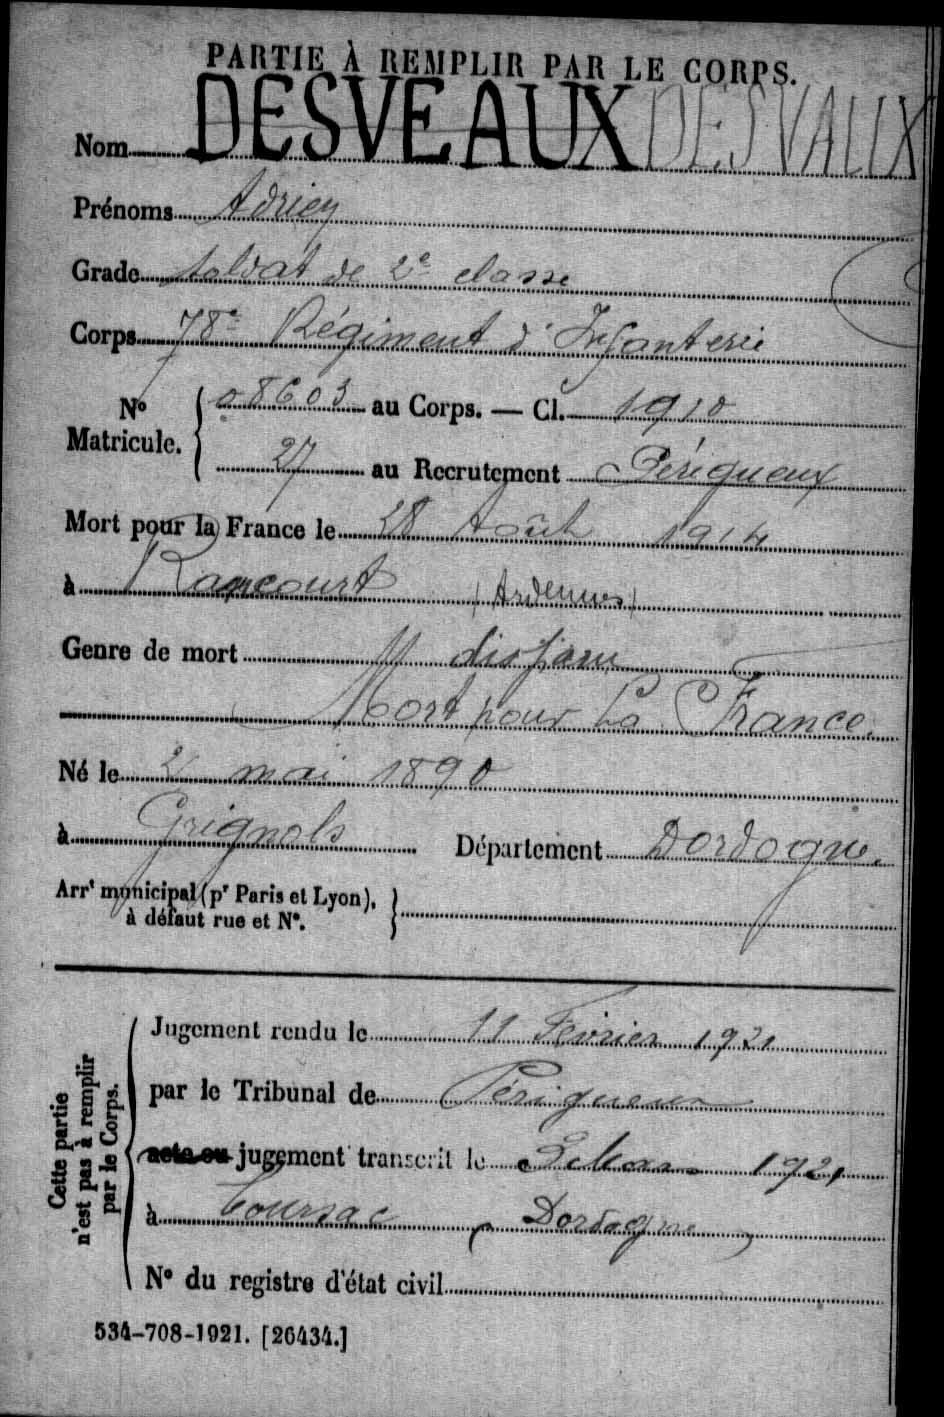 PARTIE À REMPLIR PAR LE CORPS.
Nom DESVEAUX DESVAUX
Prénoms Adrien
Grade soldat de 2e classe
Corps 78e Régiment d'Infanterie
No Matricule. { 08603 au Corps. — Cl. 1910
27 au Recrutement Périgueux
Mort pour la France le 28 Août 1914
à Raucourt (Ardennes)
Genre de mort disparu
Mort pour la France.
Né le 2 mai 1890
à Grignols Département Dordogne.
Arrt municipal (pr Paris et Lyon), }
à défaut rue et No.
Cette partie
n'est pas à remplir
par le Corps.
Jugement rendu le 11 Février 1921
par le Tribunal de Périgueux
acte ou jugement transcrit le Mars 1921
à Coursac (Dordogne)
No du registre d'état civil
534-708-1921. [26434.]